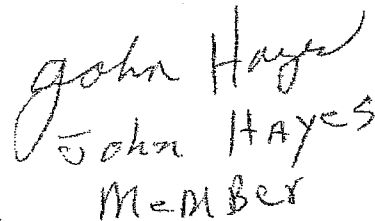 John Hayes
John HAyes
MeMBer